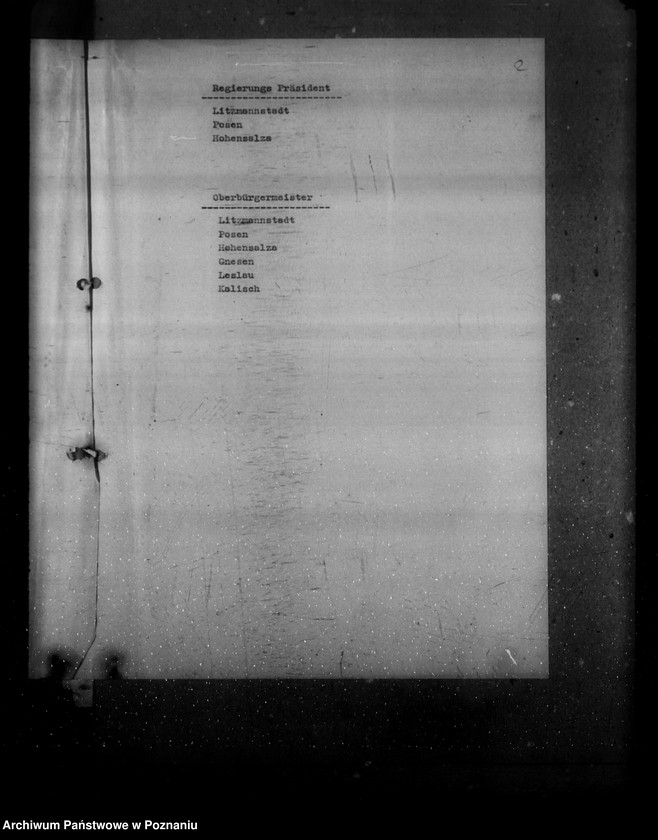 2
Regierungs Präsident
Litzmannstadt
Posen
Hohensalza
Oberbürgermeister
Litzmannstadt
Posen
Hohensalza
Gnesen
Leslau
Kalisch
Archiwum Państwowe w Poznaniu